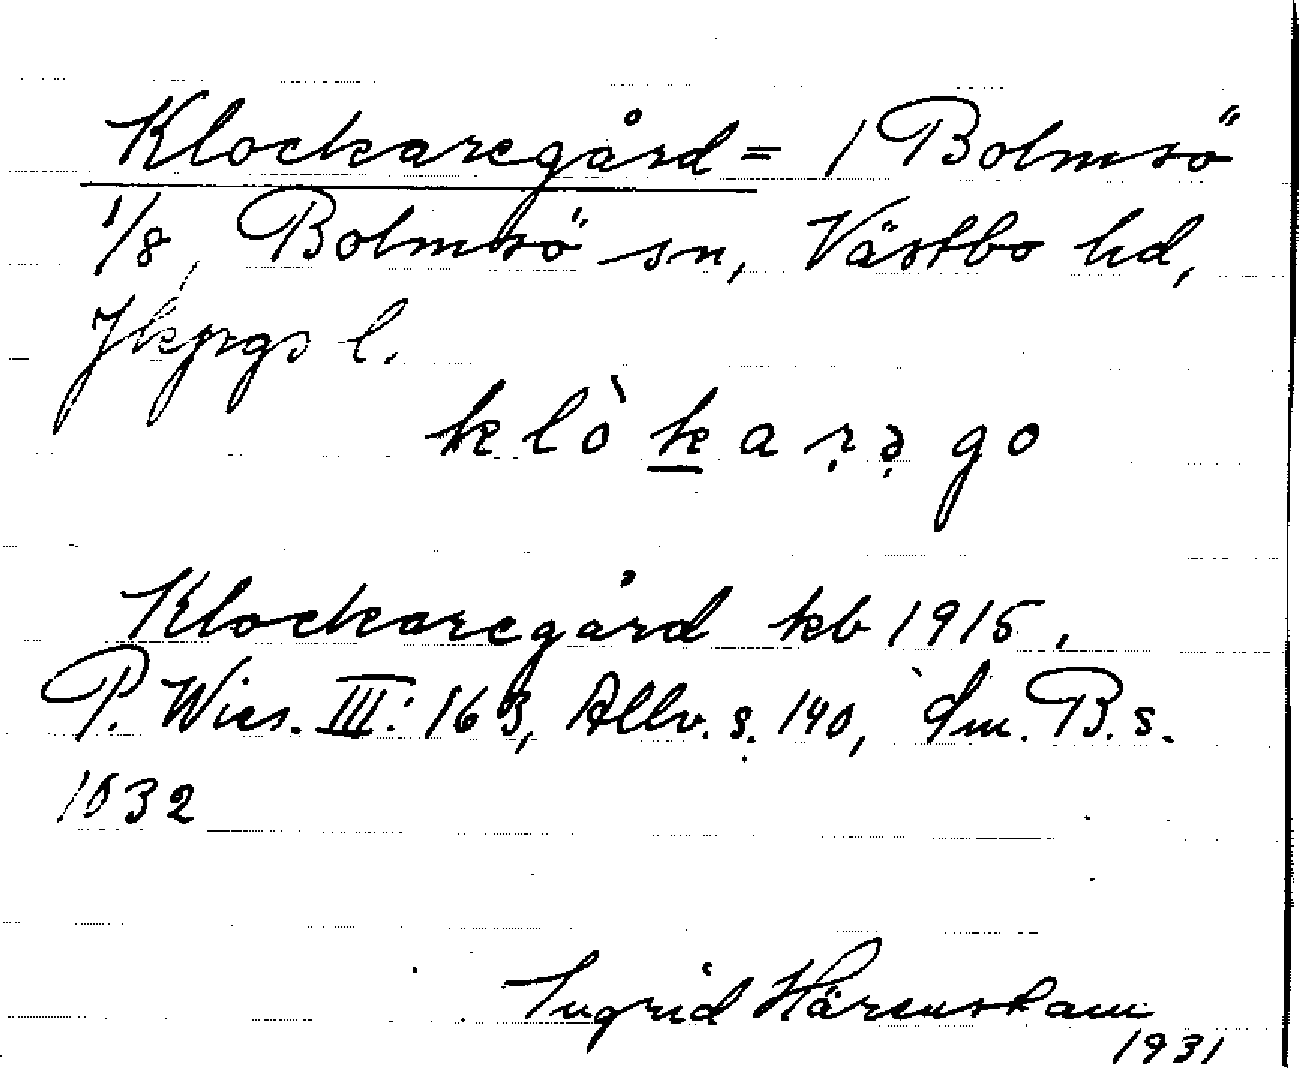 Klockaregård = / Bolmsö
1/8, Bolmsö sn, Västbo hd,
Jkpgs l.
klòkarạ̣ go
Klockaregård kb 1915.
P. Wies. III: 163, Allv. s. 140, Sm. B. s.
1032
Ingrid Härenstam
1931